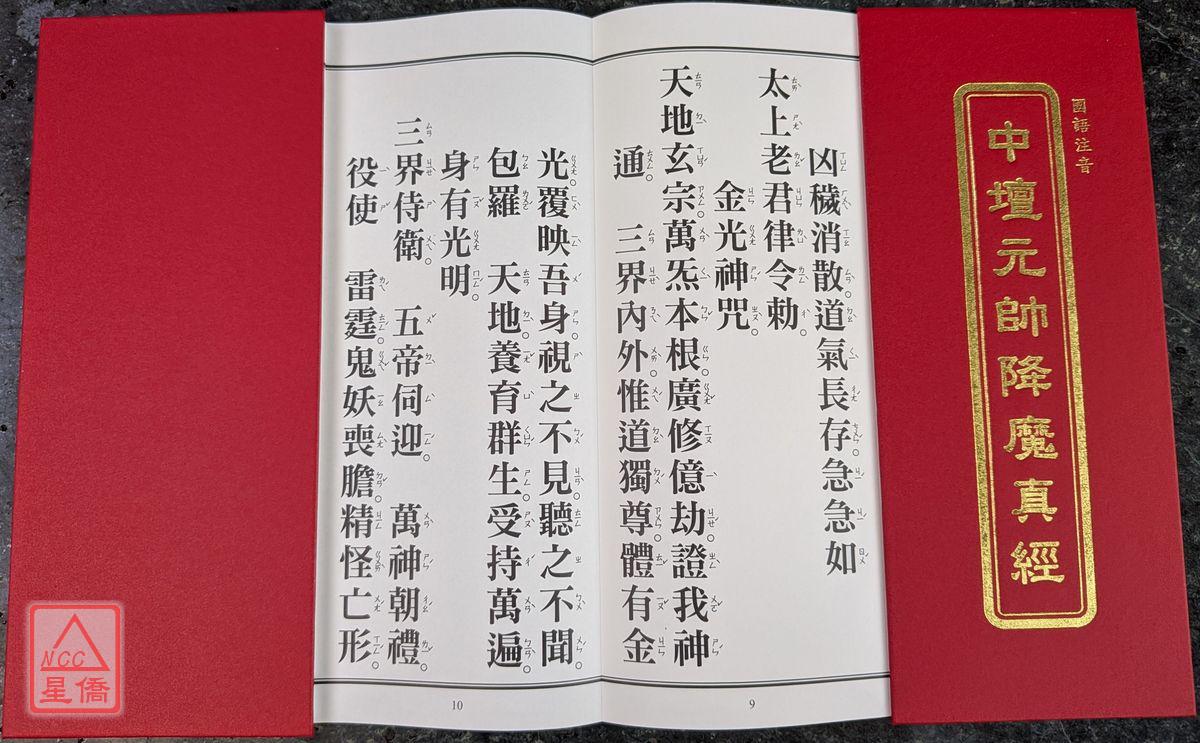 國語注音
中壇元帥降魔真經
凶穢消散。道氣長存。急急如
太上老君律令勅
金光神咒。
天地玄宗。萬炁本根。廣修億劫。證我神
通。三界內外。惟道獨尊。體有金
光。覆映吾身。視之不見。聽之不聞。
包羅天地。養育群生。受持萬遍。
身有光明。
三界侍衛。五帝伺迎。萬神朝禮。
役使雷霆。鬼妖喪膽。精怪亡形。
9
10
NCC
星僑